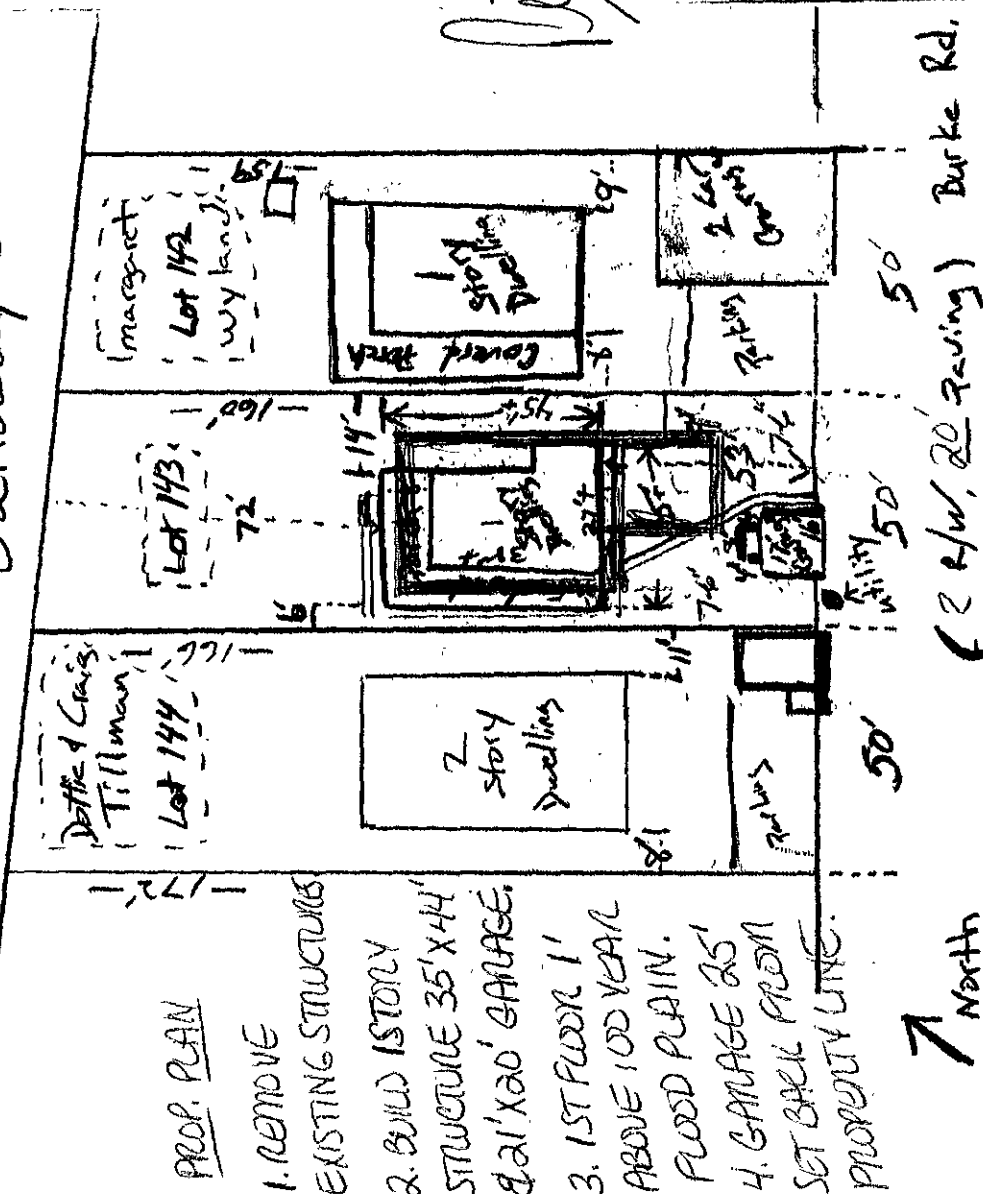 PROP. PLAN
1. REMOVE
EXISTING STRUCTURE
2. BUILD 1 STORY
STRUCTURE 35' X 44'
& 21' X 20' GARAGE.
3. 1ST FLOOR 1'
ABOVE 100 YEAR
FLOOD PLAIN.
4. GARAGE 25'
SET BACK FROM
PROPERTY LINE.
North
Dottie & Craig
Tillman
Lot 144
172'
166'
2
Story
Dwelling
11'
Parking
50'
Lot 143
72'
160'
6'
14'
45'±
27'±
53'
74'
76'
utility
50'
margaret
Lot 142
Wyland
159
1
Story
Dwelling
Coverd Porch
8'
19'
2 Car
Parking
50'
(2 R/W, 20' Paving) Burke Rd.